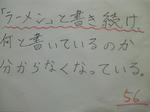 「ラーメン」と書き続け
何と書いているのか
分からなくなっている。
56